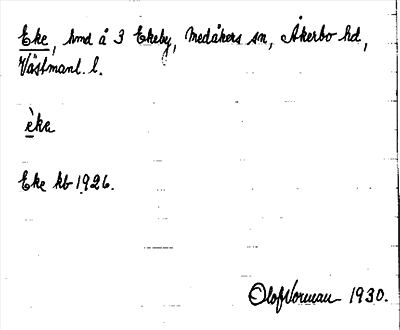 Eke, hmd å 3 Ekeby, Medåkers sn, Åkerbo hd,
Västmanl. l.
èka
Eke kb 1926.
Olof Vorman 1930.